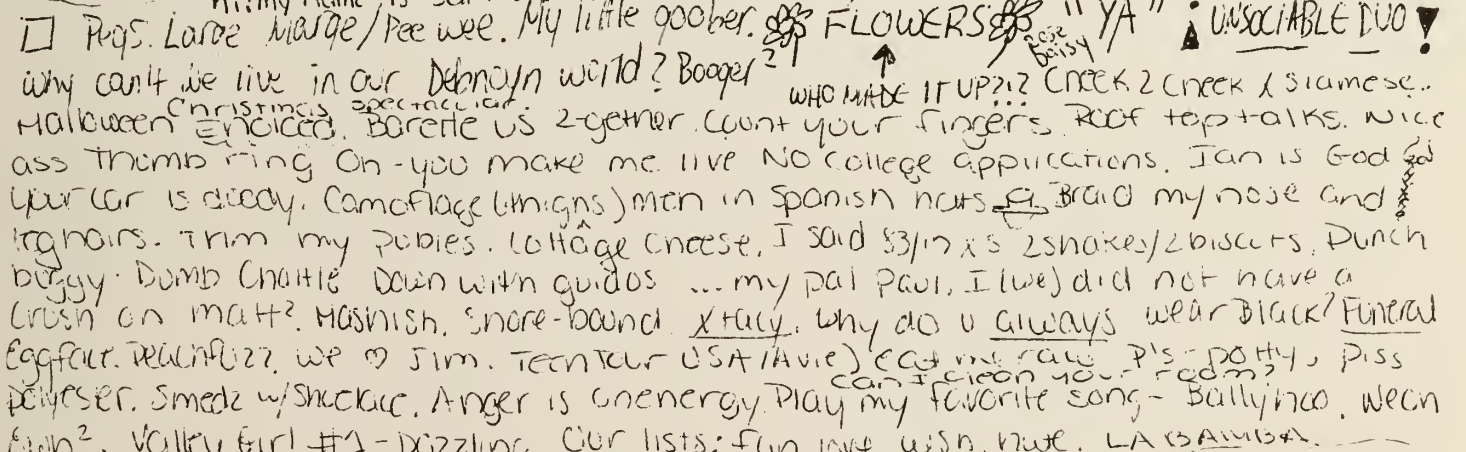 Pegs. Large Marge/Pee wee. My little goober. FLOWERS "YA" UNSOCIABLE DUO!
Rose Daisy
why can't we live in our Debnoyn world? Booger² WHO MADE IT UP?!? Cheek 2 Cheek / Siamese..
Christmas spectacular.
Halloween Enticed. Barette us 2-gether. Count your fingers. Roof top talks. Nice
ass Thumb ring Oh-you make me live NO college applications. Ian is God
Your car is doody. Camoflage men in Spanish hats Braid my nose and
leghairs. Trim my pubies. Cottage cheese. I said 2snakes/2biscuits. Punch
buggy. Dumb Charlie Down with guidos ...my pal Paul. I (we) did not have a
crush on matt². Hashish. Snore-bound. Xtacy. Why do u always wear Black? Funeral
Eggface. Peachfuzz. We ♡ Jim. Teen Tour USA (Avie) eat me raw P's-potty, piss
can I clean your room?
polyester. Smedz w/Shacklace. Anger is anenergy. Play my favorite song- Ballyhoo. Wech
Valley Girl #1-Dazzling. Our lists: fun love wish hate. LA BAMBA.